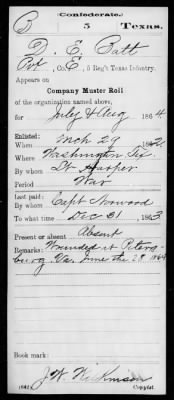 Confederate.
5 Texas.
D. E. Catt
Pvt, Co. E, 5 Reg't Texas Infantry.
Appears on
Company Muster Roll
of the organization named above,
for July & Aug 1864
Enlisted:
When Mch 29 1862
Where Washington Tex
By whom Lt Harper
Period War
Last paid:
By whom Capt Norwood
To what time Dec 31, 1863
Present or absent Absent
Remarks: Wounded at Peters-
burg Va. June the 28 1864
Book mark:
J. W. Wilkinson
Copyist.